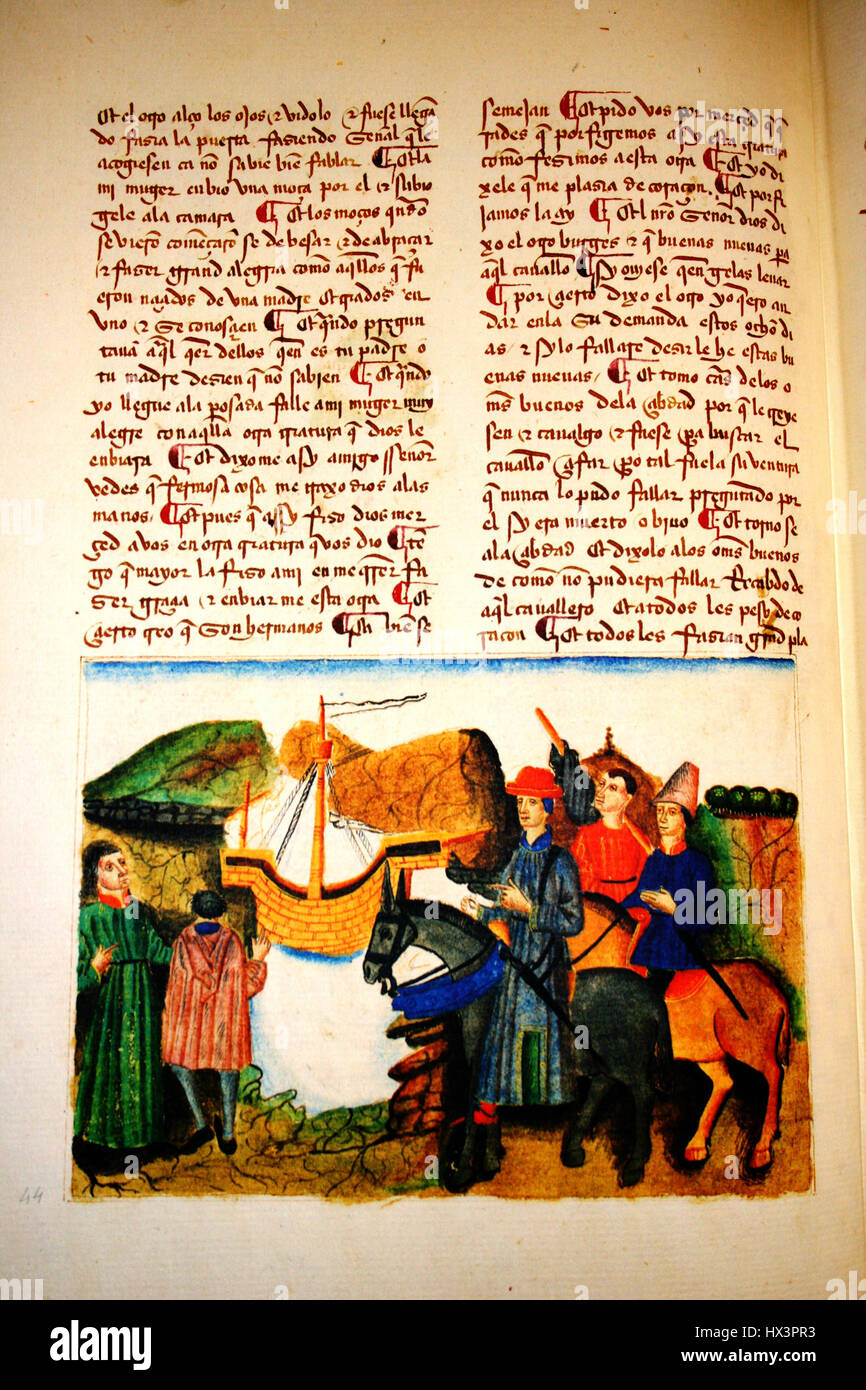 Et el otro alço los ojos ⁊ vidolo ⁊ fuese llegan
do fazia la puerta faziendo señal q̃ le
acogiesen ca nõ sabie biẽ fablar Et la
mi muger enbio una moça por el ⁊ subio
gelo ala camara Et los moços q̃ndo
se vierõ comẽçarõ se de besar ⁊ de abraçar
⁊ fazer grand alegria como aq̃llos q̃ fu
eron naçidos de una madre ⁊ criados en
uno ⁊ se conosçien Et q̃ndo pregun
tavã a q̃l q̃er dellos q̃en es tu padre o
tu madre dezien q̃ nõ sabien Et q̃ndo
yo llegue ala posada falle a mi muger muy
alegre con aq̃lla otra criatura q̃ dios le
enbiara Et dixome asy amigo Señor
vedes q̃ fermosa cosa me traxo dios alas
manos Et pues q̃ a fizo dios mer
çed a vos en otra criatura q̃ vos dio tẽ
go q̃ mayor la fizo a mi en me q̃rer fa
zer graçia ⁊ enbiar me esta otra Et
çierto creo q̃ son hermanos biẽ se
semejan Et pido vos por merçed q̃
rades q̃ porfigemos a esta criatura
como fezimos a esta otra Et yo di
xele que me plazia de coraçon Et porfi
jamos lo Et nr̃o señor dios di
xo el otro burges ⁊ q̃ buenas nuevas pa
aq̃l cavallo Sy oviese q̃en gelas levar
por çierto dixo el otro yo q̃ero an
dar en la su demanda estos ocho di
as ⁊ sy lo fallare dezir le he estas bu
enas nuevas Et tomo cãs de los o
mẽs buenos dela çibdad por q̃ le creye
sen ⁊ cavalgo ⁊ fuese pa buscar el
cavallo çifar pero tal fue la su ventura
q̃ nunca lo pudo fallar preguntado por
el sy era muerto o bivo Et torno se
ala çibdad Et dixolo alos omẽs buenos
de como nõ pudiera fallar Recabdo de
aq̃l cavallero Et a todos les peso de co
raçon Et todos les fazian grãd pla
44
alamy
Image ID: HX3PR3
www.alamy.com